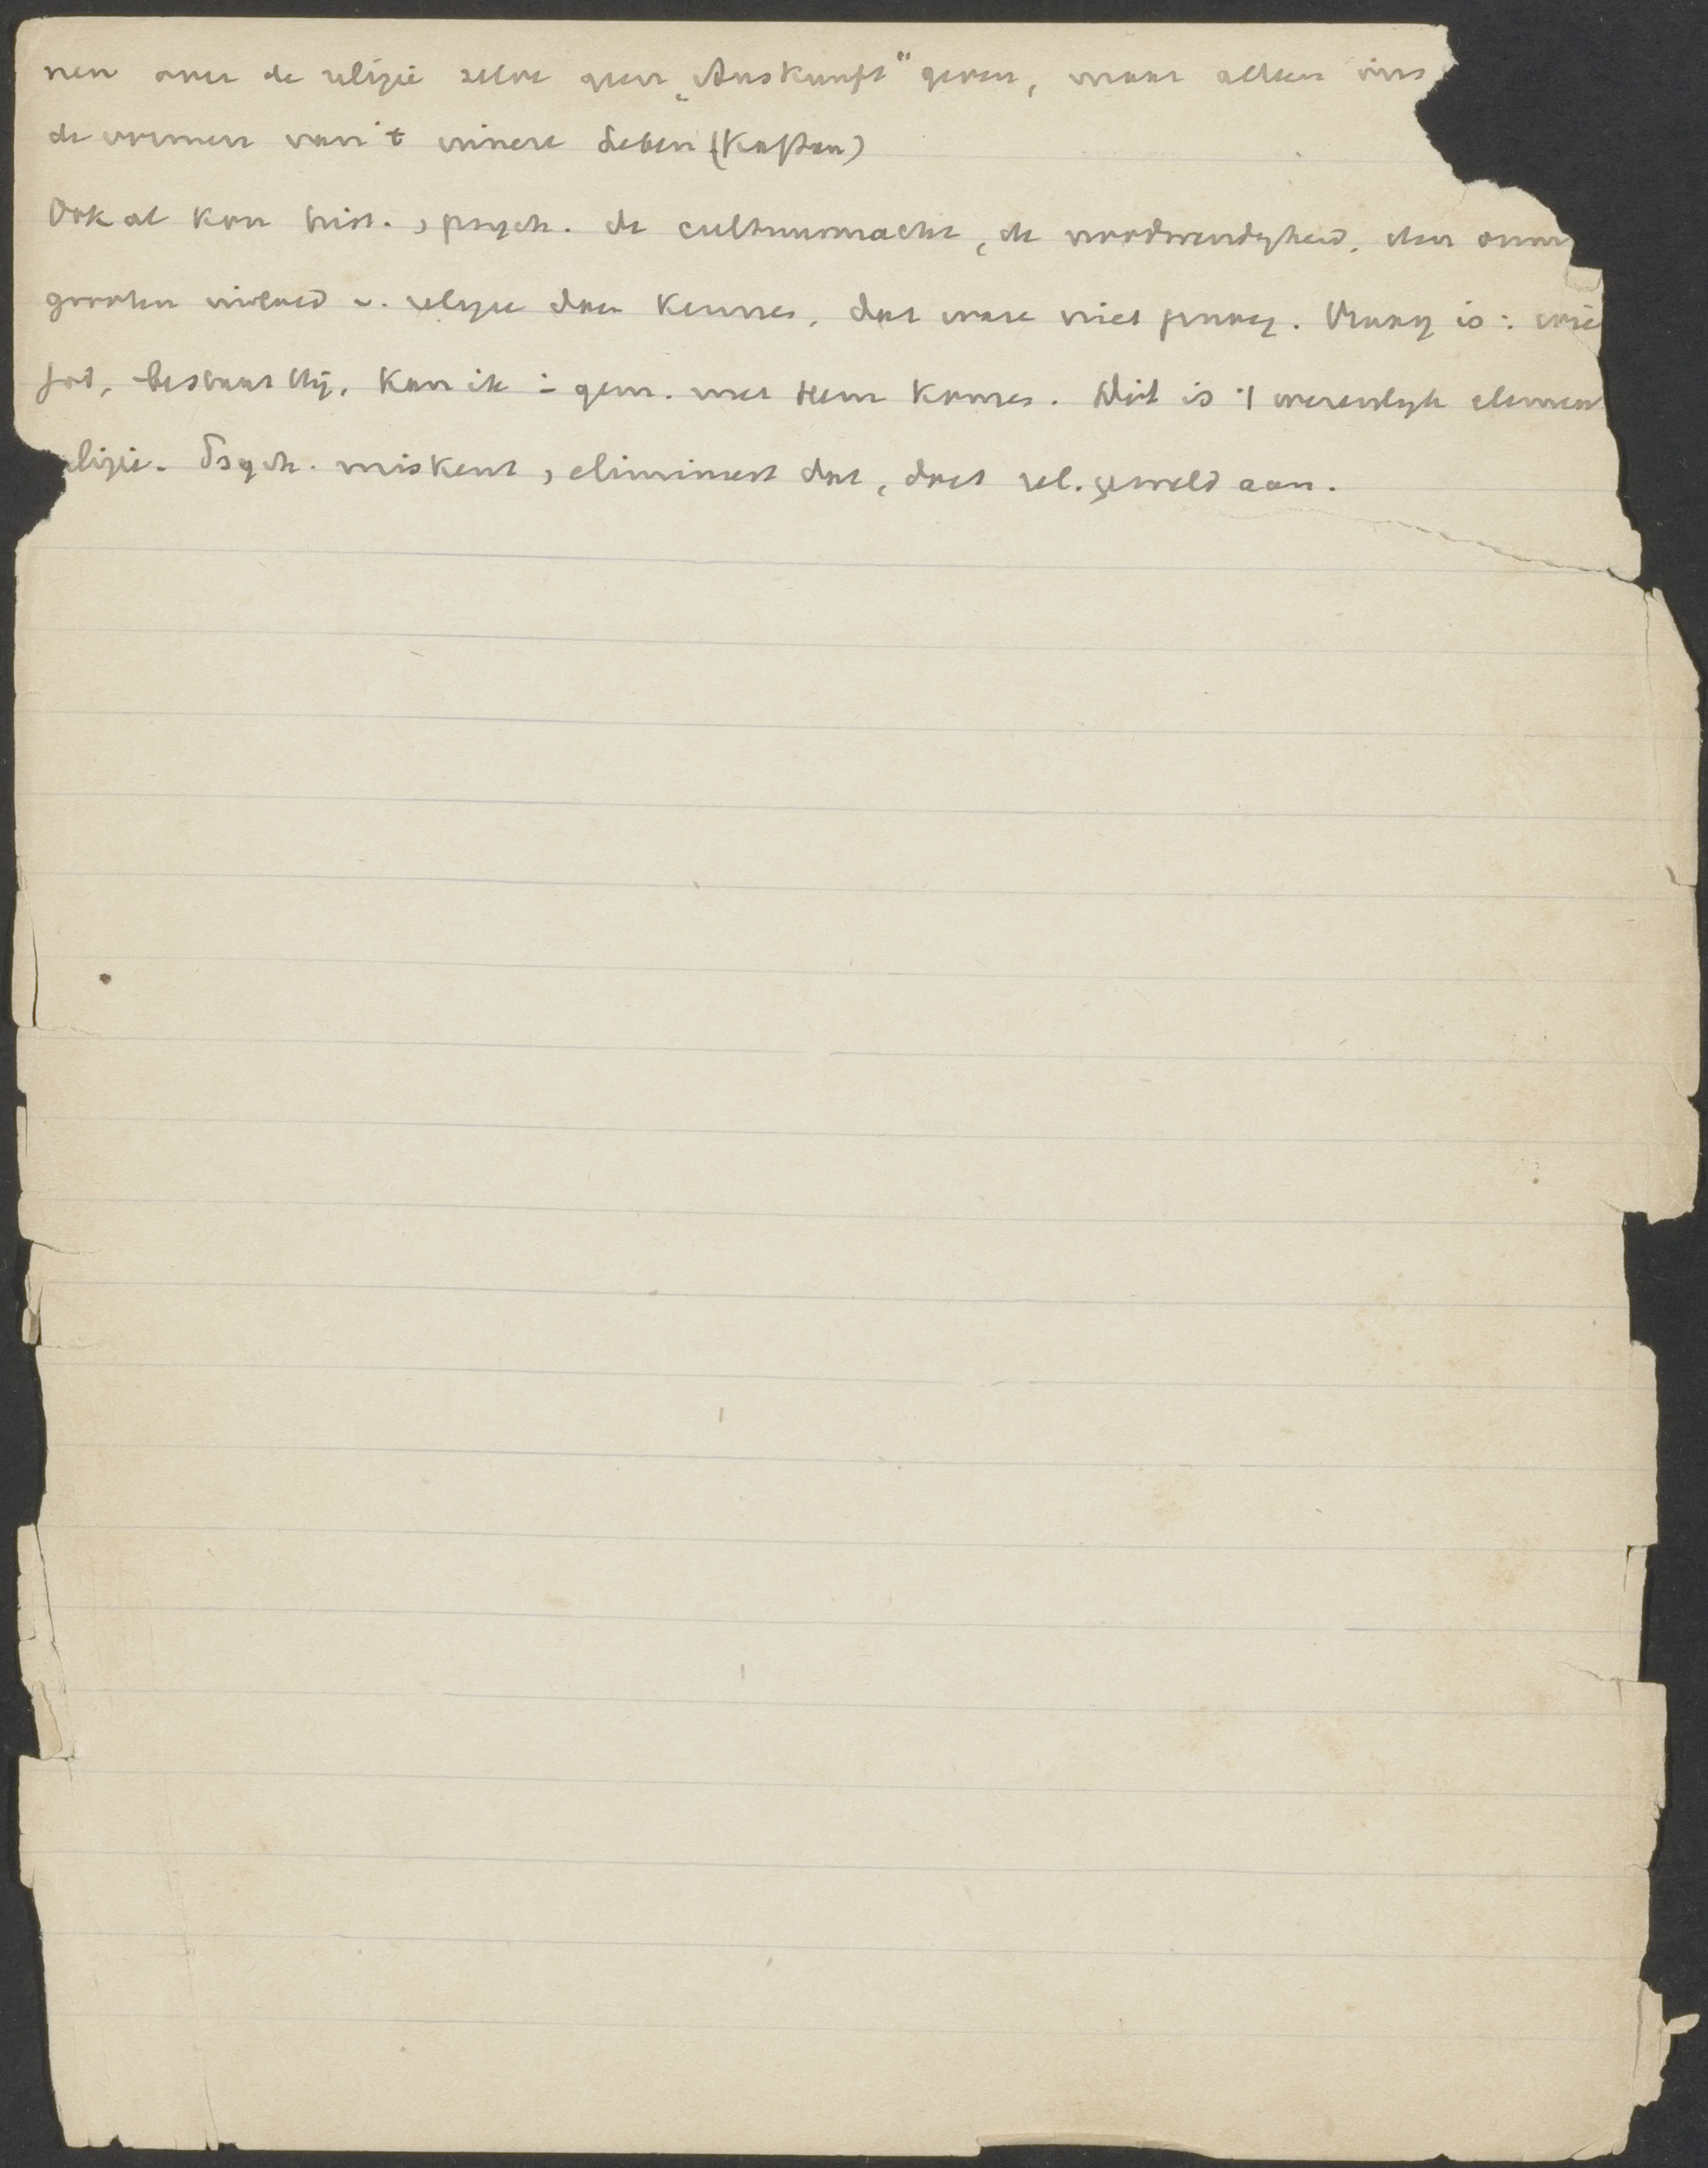 nen over de religie zelve geen „Auskunft" geven, maar alleen over
de vormen van 't innere Leben (Kaftan)
Ook al kon hist. , psych. de cultuurmacht, de noodwendigheid, den
grooten invloed v. religie doen kennen, dat ware niet genoeg. Vraag is: wie
God, bestaat Hij, kan ik i gem. met Hem komen. Dit is 't wezenlijk element
religie. Psych. miskent, elimineert dat, doet rel. geweld aan.